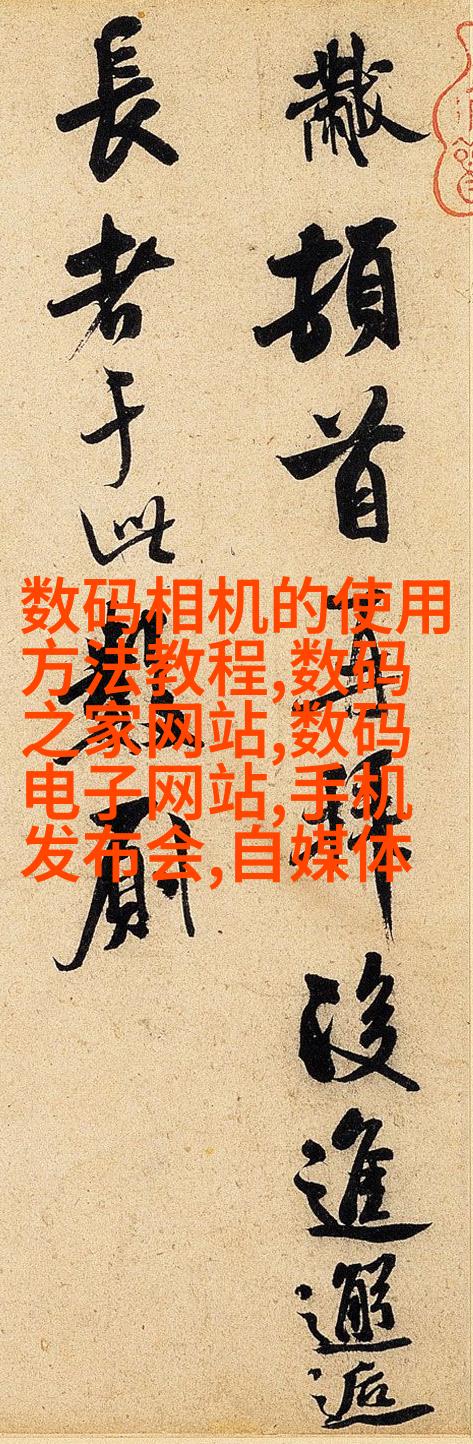 黻頓首再拜後進邂逅
長者于此
数码相机的使用
方法教程,数码
之家网站,数码
电子网站,手机
发布会,自媒体